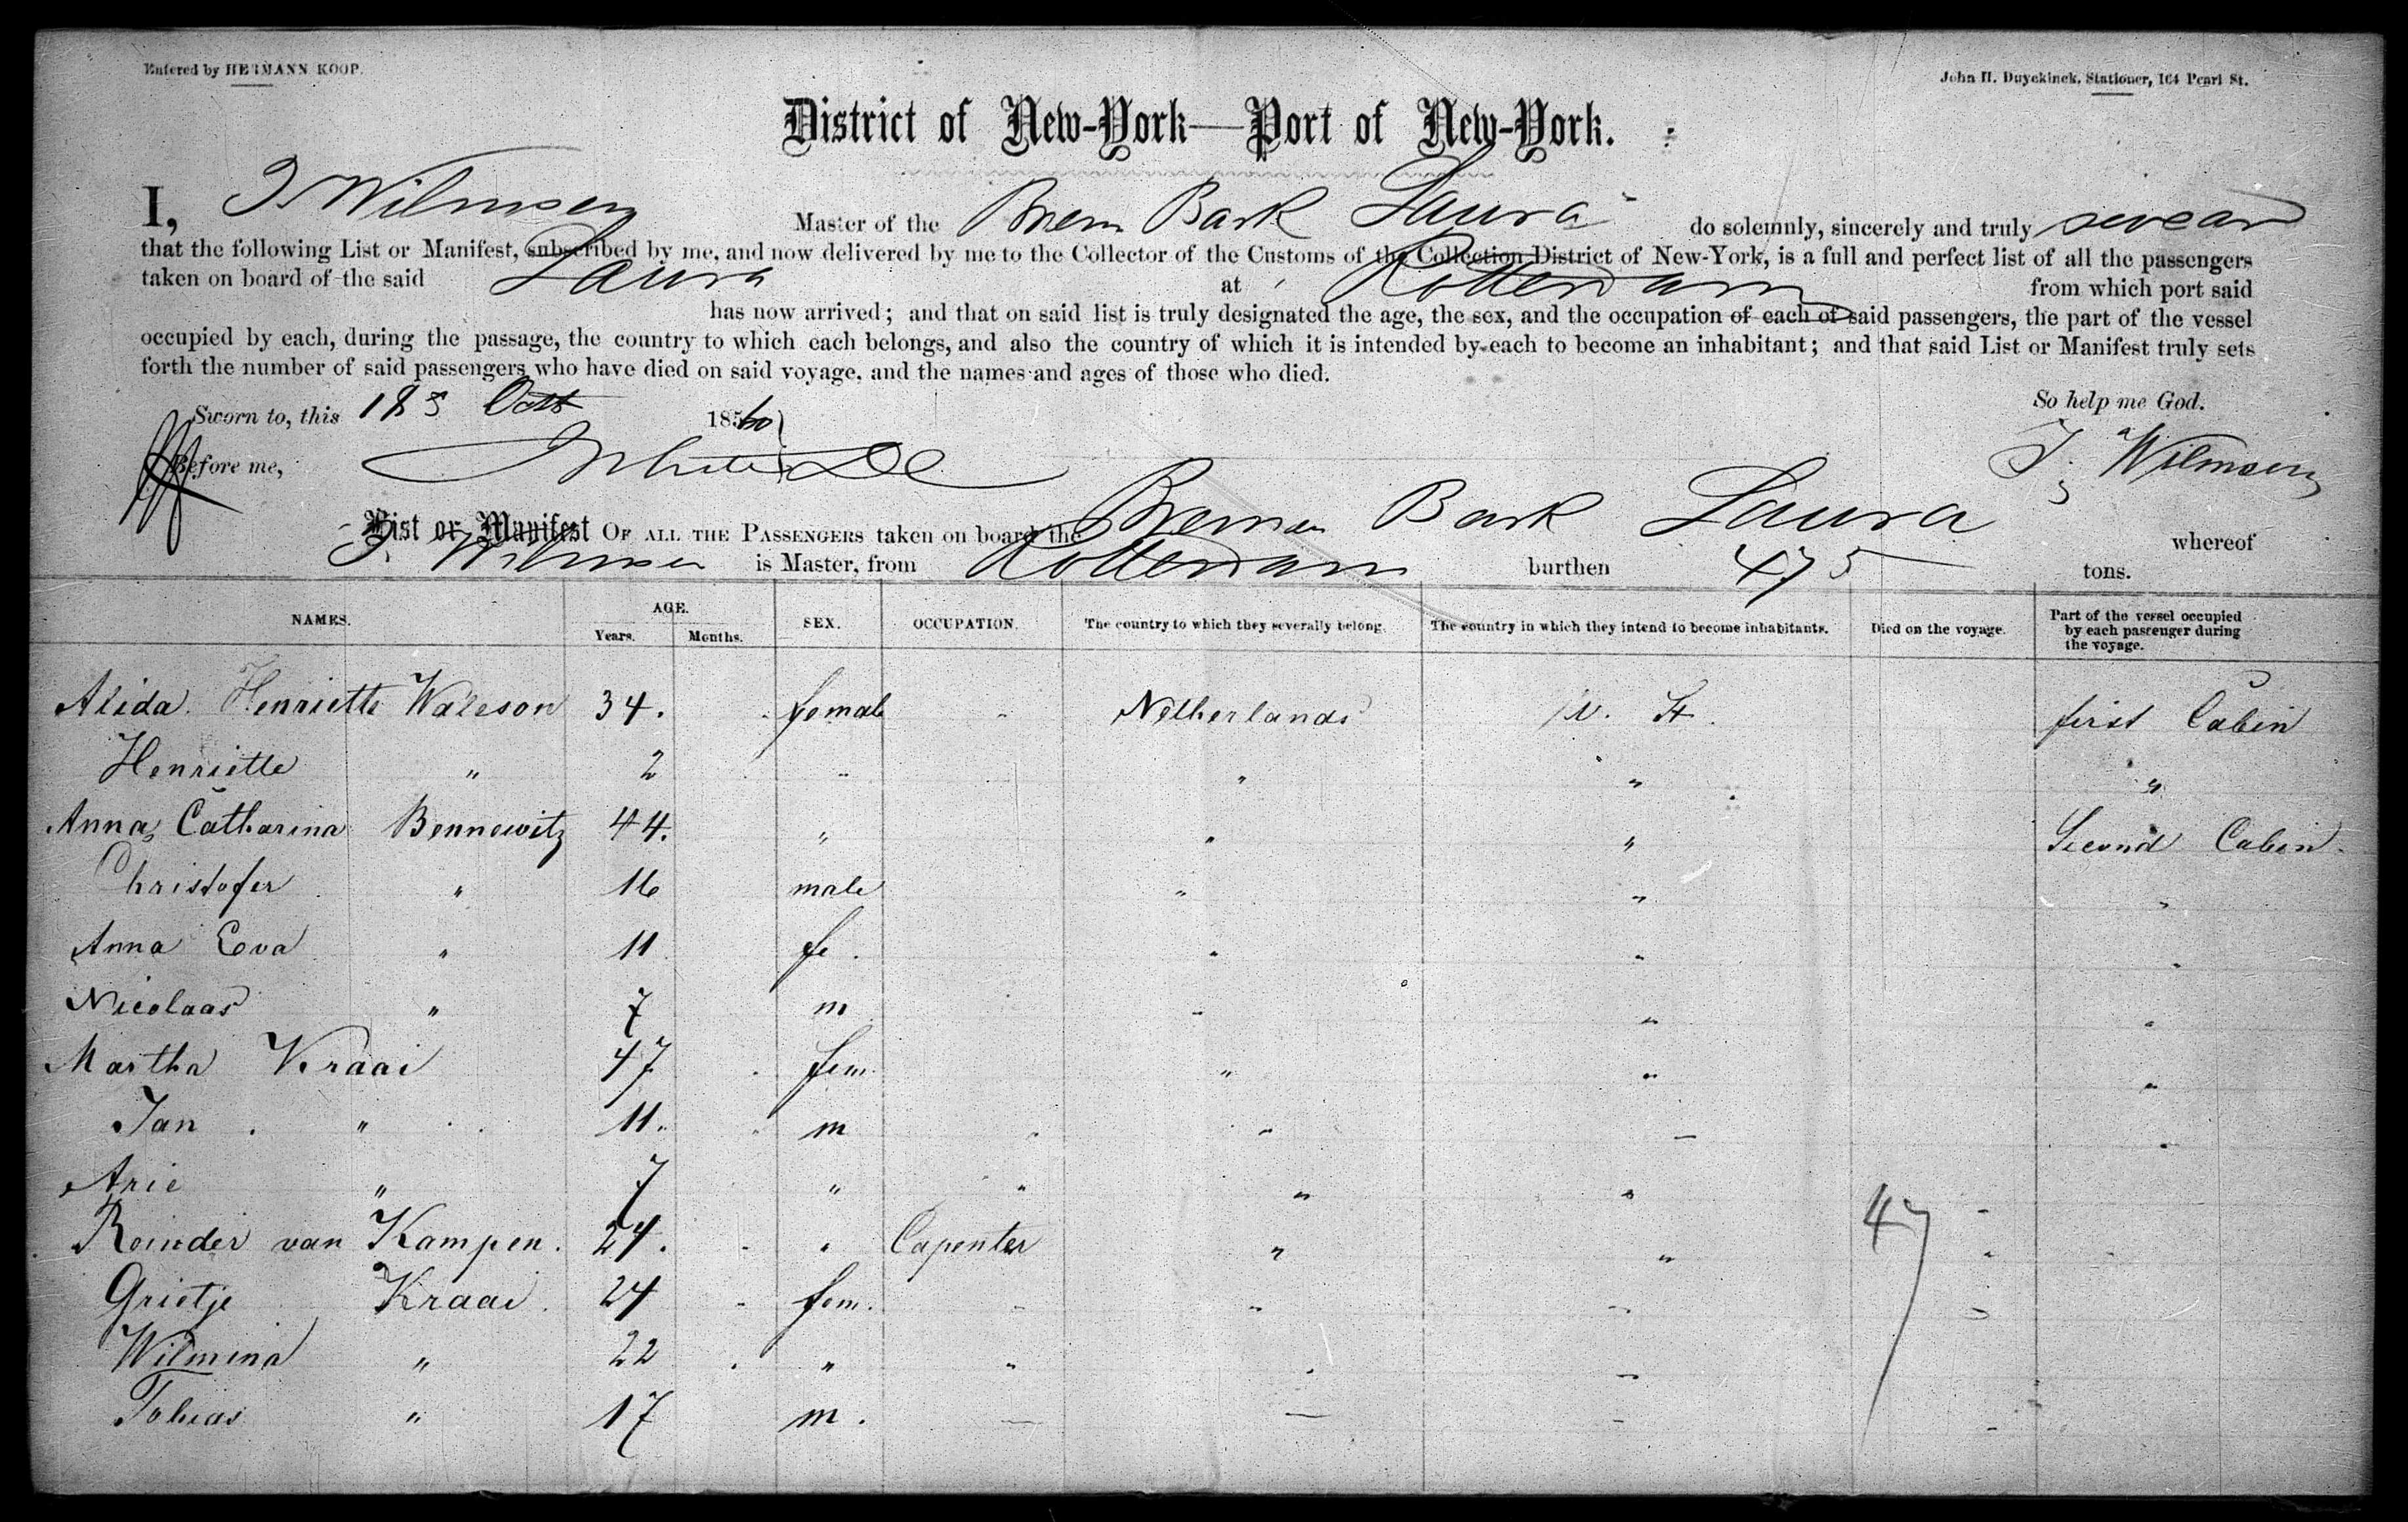 Entered by HERMANN KOOP.
John H. Duyckinck, Stationer, 164 Pearl St.
District of New-York—Port of New-York.
I, J Wilmsen Master of the Brem Bark Laura do solemnly, sincerely and truly swear
that the following List or Manifest, subscribed by me, and now delivered by me to the Collector of the Customs of the Collection District of New-York, is a full and perfect list of all the passengers
taken on board of the said Laura at Rotterdam from which port said
has now arrived; and that on said list is truly designated the age, the sex, and the occupation of each of said passengers, the part of the vessel
occupied by each, during the passage, the country to which each belongs, and also the country of which it is intended by each to become an inhabitant; and that said List or Manifest truly sets
forth the number of said passengers who have died on said voyage, and the names and ages of those who died.
So help me God.
Sworn to, this 18 Oct 1860
Before me,
J. Wilmsen
List or Manifest OF ALL THE PASSENGERS taken on board the Bremen Bark Laura whereof
J. Wilmsen is Master, from Rotterdam burthen 475 tons.
NAMES. AGE. Years. Months. SEX. OCCUPATION. The country to which they severally belong. The country in which they intend to become inhabitants. Died on the voyage. Part of the vessel occupied by each passenger during the voyage.
Alida Henriette Waleson 34. female Netherlands U. St. first Cabin
Henriette " 2 " " " "
Anna Catharina Bennewitz 44. " " " Second Cabin.
Christofer " 16 male " " "
Anna Eva " 11 fe. " " "
Nicolaas " 7 m " " "
Martha Kraai 47 fem. " " "
Jan " 11. m " " "
Arie " 7 " " " "
Reinder van Kampen. 24. " Capenter " " "
Grietje Kraai. 24 fem. " " "
Wilmina " 22 " " " "
Tobias " 17 m. — — "
47